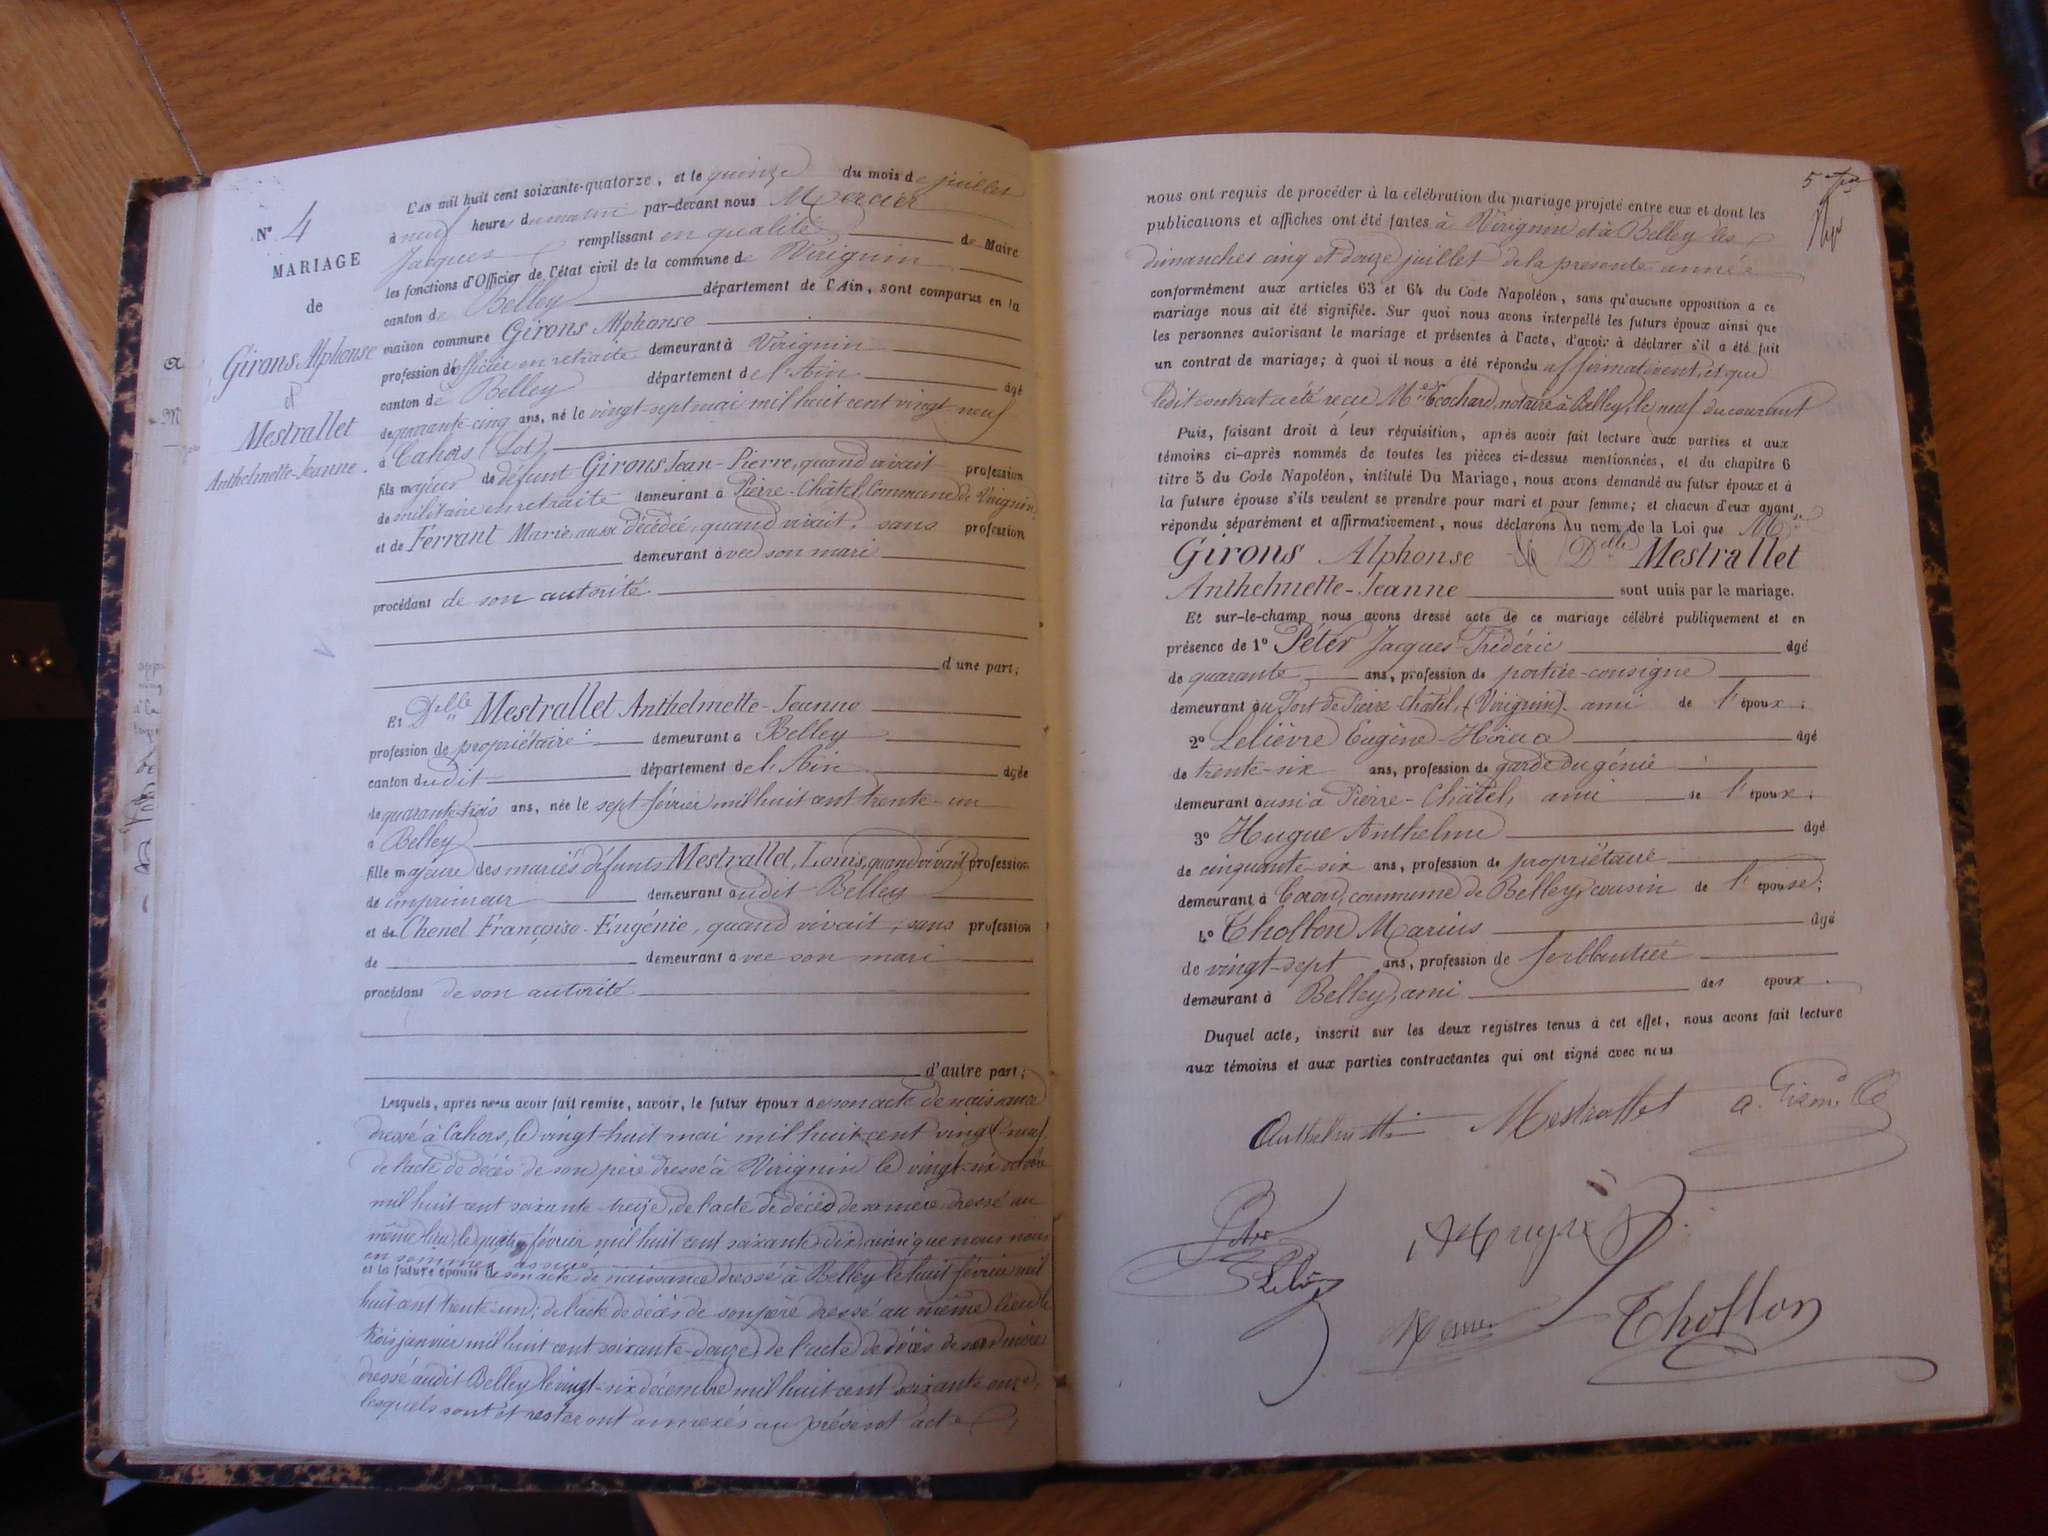 N° 4
MARIAGE
de
Girons Alphonse
et
Mestrallet
Anthelmette-Jeanne.
L'AN mil huit cent soixante-quatorze, et le quinze du mois de juillet
à neuf heures du matin par-devant nous Mercier
Jacques remplissant en qualité de Maire
les fonctions d'Officier de l'état civil de la commune de Virignin
canton de Belley département de l'Ain, sont comparus en la
maison commune Girons Alphonse
profession d'officier en retraite demeurant à Virignin
canton de Belley département de l'Ain âgé
de quarante-cinq ans, né le vingt-sept mai mil huit cent vingt-neuf
à Cahors (Lot)
fils majeur de défunt Girons Jean-Pierre, quand vivait profession
de militaire en retraite demeurant à Pierre-Châtel, Commune de Virignin,
et de Ferrant Marie, aussi décédée, quand vivait, sans profession
demeurant avec son mari
procédant de son autorité
d'une part;
Et Delle Mestrallet Anthelmette-Jeanne
profession de propriétaire demeurant à Belley
canton dudit département de l'Ain âgée
de quarante-trois ans, née le sept février mil huit cent trente-un
à Belley
fille majeure des mariés défunts Mestrallet, Louis, quand vivait profession
de imprimeur demeurant audit Belley
et de Chenel Françoise-Eugénie, quand vivait, sans profession
de demeurant avec son mari
procédant de son autorité
d'autre part;
Lesquels, après nous avoir fait remise, savoir, le futur époux de son acte de naissance
dressé à Cahors, le vingt huit mai mil huit cent vingt-neuf,
de l'acte de décès de son père dressé à Virignin le vingt-six octobre
mil huit cent soixante-treize, de l'acte de décès de sa mère dressé au
même lieu, le quatre février mil huit cent soixante-dix, ainsi que nous nous
en sommes assurés
et la future épouse de son acte de naissance dressé à Belley le huit février mil
huit cent trente-un; de l'acte de décès de son père dressé au même lieu le
trois janvier mil huit cent soixante-douze, de l'acte de décès de sa mère
dressé audit Belley le vingt-six décembre mil huit cent soixante onze,
lesquels sont et resteront annexés au présent acte
5
nous ont requis de procéder à la célébration du mariage projeté entre eux et dont les
publications et affiches ont été faites à Virignin et à Belley les
dimanches cinq et douze juillet de la présente année
conformément aux articles 63 et 64 du Code Napoléon, sans qu'aucune opposition a ce
mariage nous ait été signifiée. Sur quoi nous avons interpellé les futurs époux ainsi que
les personnes autorisant le mariage et présentes à l'acte, d'avoir à déclarer s'il a été fait
un contrat de mariage; à quoi il nous a été répondu affirmativement, et que
ledit contrat a été reçu Me Ecochard, notaire à Belley, le neuf du courant
Puis, faisant droit à leur réquisition, après avoir fait lecture aux parties et aux
témoins ci-après nommés de toutes les pièces ci-dessus mentionnées, et du chapitre 6
titre 5 du Code Napoléon, intitulé Du Mariage, nous avons demandé au futur époux et à
la future épouse s'ils veulent se prendre pour mari et pour femme; et chacun d'eux ayant
répondu séparément et affirmativement, nous déclarons Au nom de la Loi que Mr
Girons Alphonse et Delle Mestrallet
Anthelmette-Jeanne sont unis par le mariage.
Et sur-le-champ nous avons dressé acte de ce mariage célébré publiquement et en
présence de 1° Péter Jacques-Frédéric âgé
de quarante ans, profession de portier-consigne
demeurant au Fort de Pierre-Châtel, (Virignin) ami de l'époux;
2° Lelièvre Eugène âgé
de trente-six ans, profession de garde du génie
demeurant aussi à Pierre-Châtel, ami de l'époux;
3° Hugue Anthelme âgé
de cinquante-six ans, profession de propriétaire
demeurant à Coron, commune de Belley, cousin de l'épouse;
4° Thollon Marius âgé
de vingt-sept ans, profession de ferblantier
demeurant à Belley, ami des époux
Duquel acte, inscrit sur les deux registres tenus à cet effet, nous avons fait lecture
aux témoins et aux parties contractantes qui ont signé avec nous
Anthelmette Mestrallet
Thollon